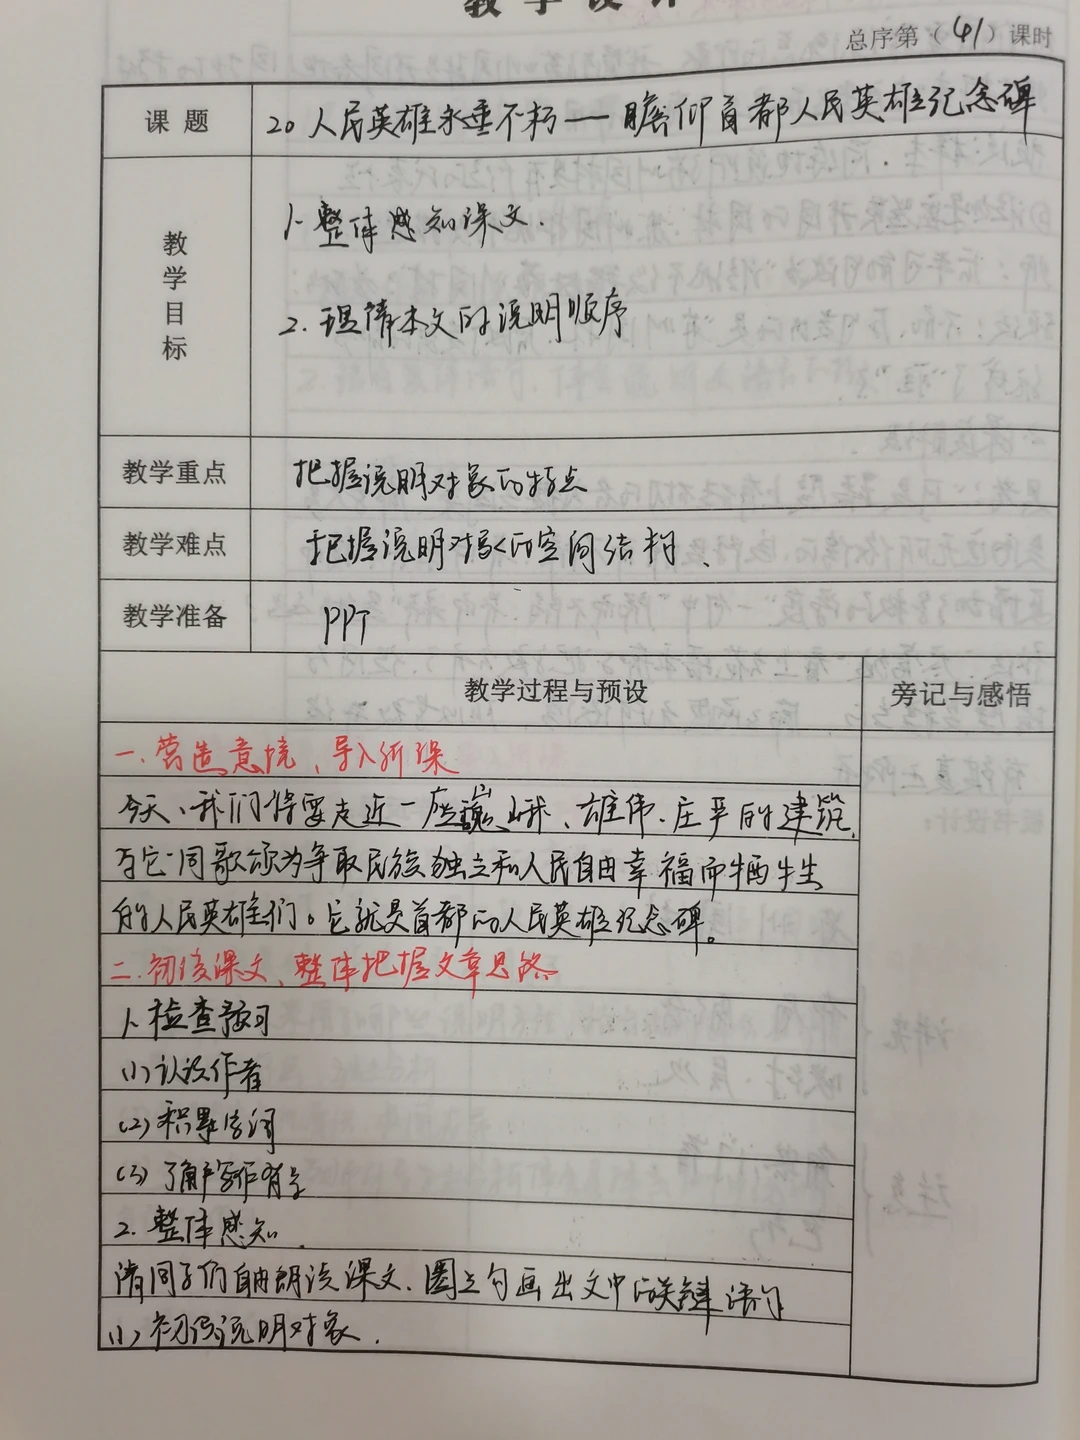 教学设计
总序第（41）课时
课题 20 人民英雄永垂不朽——瞻仰首都人民英雄纪念碑
教学目标
1. 整体感知课文.
2. 理清本文的说明顺序
教学重点 把握说明对象的特点
教学难点 把握说明对象的空间结构、
教学准备 PPT
教学过程与预设 旁记与感悟
一、营造意境，导入新课
今天、我们将要走近一座巍峨、雄伟、庄严的建筑,
与它一同歌颂为争取民族独立和人民自由幸福而牺牲
的人民英雄们。它就是首都的人民英雄纪念碑。
二、初读课文、整体把握文章思路
1、检查预习
(1) 认识作者
(2) 积累字词
(3) 了解写作背景
2. 整体感知.
请同学们自由朗读课文、圈点勾画出文中的关键语句
(1) 初识说明对象.